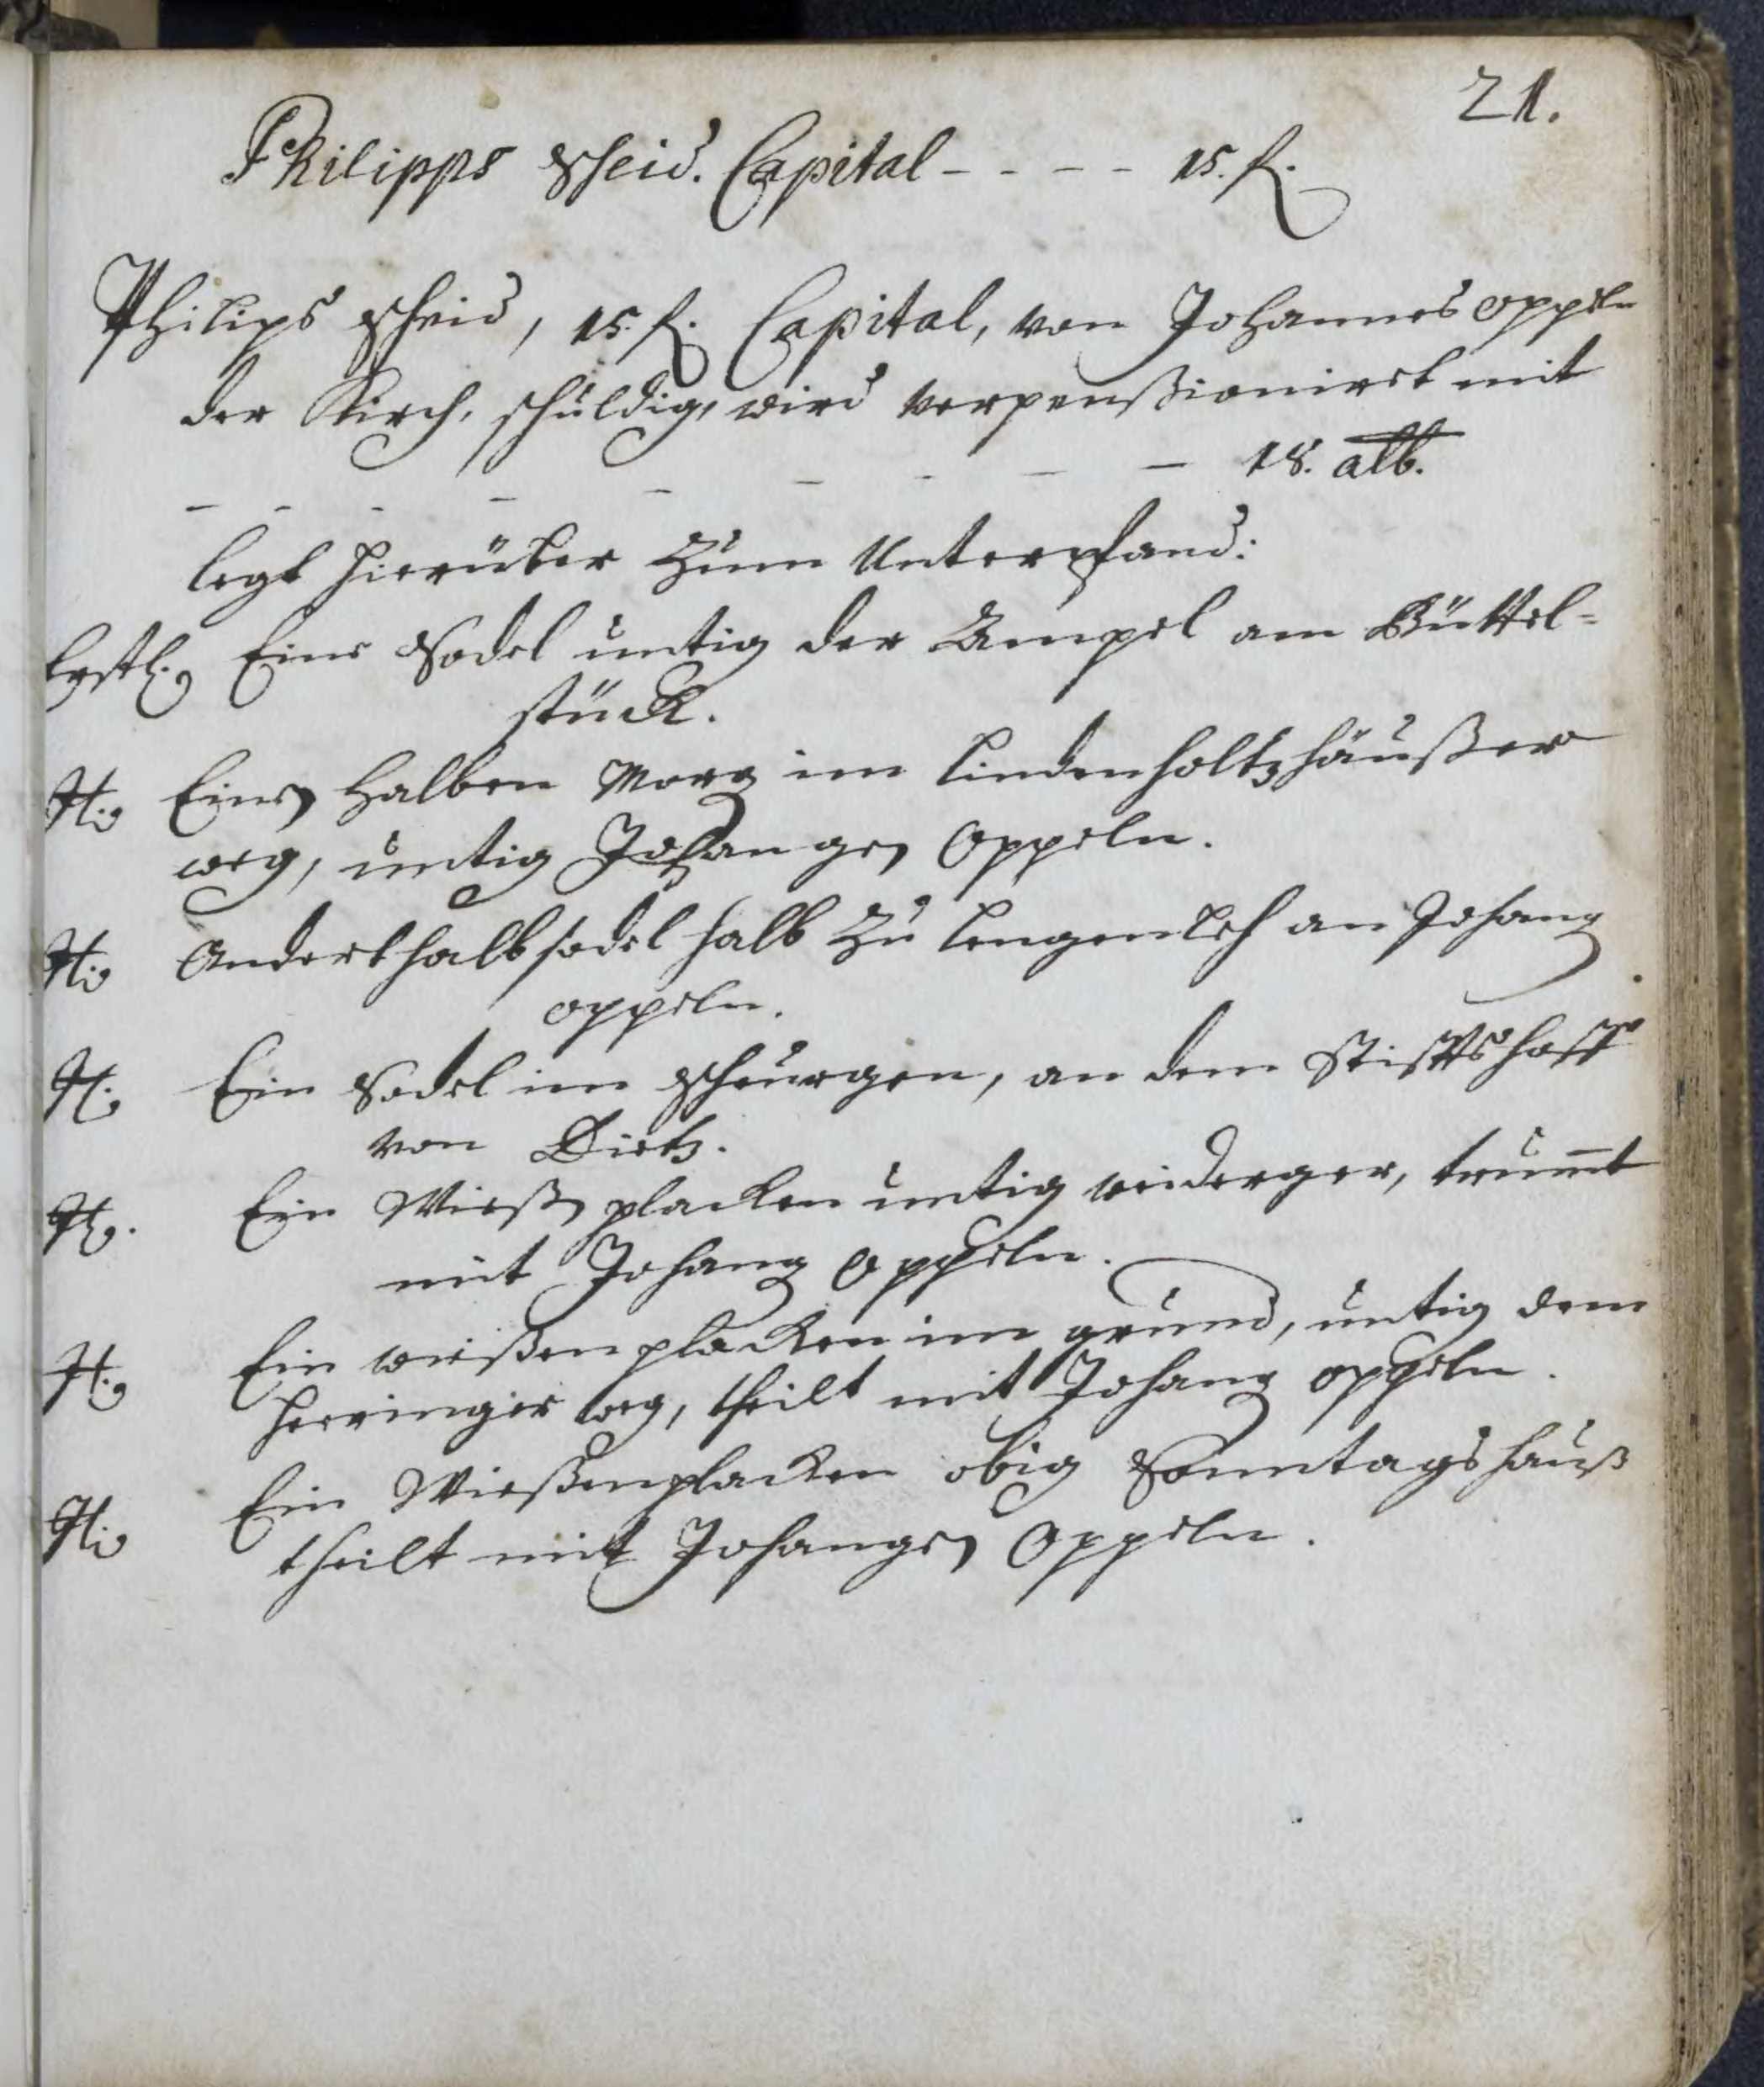 21.
Philipps Scheid. Capital - - - - 15. fl.
Philips Scheid, 15. fl. Capital, von Johannes Oppeln
der Kirch, schuldig, wird verpenßioniret mit
- - - - - - - - - 18. alb.
legt hierüber zum Unterpfand:
Erstl. Eine Sodel untig der Ampel am Büttel=
stück.
It: Einen halben Morg im Lindenholtzhäußer
weg, untig Johangen Oppeln.
It: Anderthalb sodel halb zu Langenloh an Johang
oppeln.
It: Ein Sodel im Scheurgen, an dem Stiffts hoff
von Dietz.
It. Ein Wießen placken untig weidenger, trumt
mit Johang Oppeln.
It: Ein wießenplacken im grund, untig dem
Heeringer weg, theilt mit Johang Oppeln.
It: Ein Wießenplacken obig Sonntags hauß
theilt mit Johangen Oppeln.